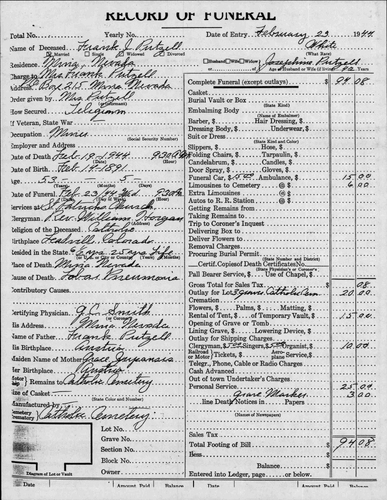 RECORD OF FUNERAL
Total No. Yearly No. Date of Entry February 23 1944
Name of Deceased Frank J. Putzell White
Married Single Widowed Divorced (What Race)
Residence Mina, Nevada Husband Wife Widow of Josephine Putzell
Charge to Mrs Frank Putzell Age of Husband or Wife (if living) 42 Years
Address Box 215 Mina Nevada Complete Funeral (except outlays) $ 94 08
Order given by Mrs Putzell Casket
How Secured Telegram Burial Vault or Box
(State Kind)
If Veteran, State War Embalming Body
(Name of Embalmer)
Occupation Miner Barber, $ Hair Dressing, $
(Social Security Number) Dressing Body, $ Underwear, $
Employer and Address Suit or Dress
(State Kind and Color)
Date of Death Feb. 19-1944 9:30 Slippers, $ Hose, $
Date of Birth Feb. 14-1891 Folding Chairs, $ Tarpaulin, $
Candelabrum, $ Candles, $
Age 53 5 Door Spray, $ Gloves, $
Date of Funeral Feb. 23-44 Wed. 9:30 Funeral Car, $ Ambulance, $ 15 00
Services at St Patrick Church Limousines to Cemetery @ $ 6 00
Extra Limousines @ $
Clergyman Rev. William Horgan Autos to R. R. Station @ $
Religion of the Deceased Catholic Getting Remains
Taking Remains
Birthplace Leadville Colorado Trip to Coroner's Inquest
Delivery Box
Resided in the State Deliver Flowers
Removal Charges
Place of Death Mina Nevada Procuring Burial Permit
(State Whether City or County)
Cause of Death Lobar Pneumonia Certif. Copies of Death Certificates
(State Physician's or Coroner's)
Pall Bearer Service, $ Use of Chapel, $
Contributory Causes Gross Total for Sales Tax $ 08
Outlay for Catholic Cem. 20 00
Cremation
Certifying Physician J.C. Smith Flowers, $ Palms, $ Matting, $
His Address Mina Nevada Rental of Tent, $ of Temporary Vault, $ 15 00
Opening of Grave or Tomb
Name of Father Frank Putzell Lining Grave, $ Lowering Device, $
His Birthplace Austria Outlay for Shipping Charges
Clergyman, $ Singers, $ Organist, $ 10 00
Maiden Name of Mother Railroad or Motor Tickets, $ Aeroplane Service, $
Her Birthplace Austria Telegr., Phone, Cable or Radio Charges
Cash Advanced
Remains to Catholic Cemetery Out of town Undertaker's Charges
Size of Casket Personal Service 25 00
(State Color and Number) Grave Marker 3 00
Manufactured by line Death Notices in Papers
(Names of Newspapers)
Cemetery Catholic Cemetery
Lot No.
Grave No. Sales Tax
Section No. Total Footing of Bill $ 94 08
Block No. Less
Owner Balance
Diagram of Lot or Vault Entered into Ledger, page or below
Date Amount Paid Balance Date Amount Paid Balance